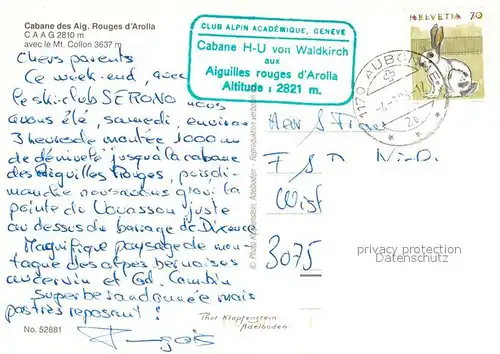 Cabane des Aig. Rouges d'Arolla
C A A G 2810 m
avec le Mt. Collon 3637 m
CLUB ALPIN ACADÉMIQUE, GENÈVE
Cabane H-U von Waldkirch
aux
Aiguilles rouges d'Arolla
Altitude : 2821 m.
HELVETIA 70
1170 AUBONNE
Chers parents
Ce week-end, avec
le ski-club SERONO nous
avons été, samedi, environ
3 heures de montée 1000 m
de dénivelé jusqu'à la cabane
des Aiguilles Rouges, puis di-
manche nous avons gravi la
pointe du Vouasson juste
au dessus du barrage de Dixence
Magnifique paysage de mon-
tagne des alpes bernoises
au cervin et Gd. Combin
Superbe randonnée mais
pas très reposant !
3075
privacy protection
Datenschutz
© Photo Klopfenstein, Adelboden - Reproduktion verboten
No. 52881
Phot Klopfenstein
Adelboden